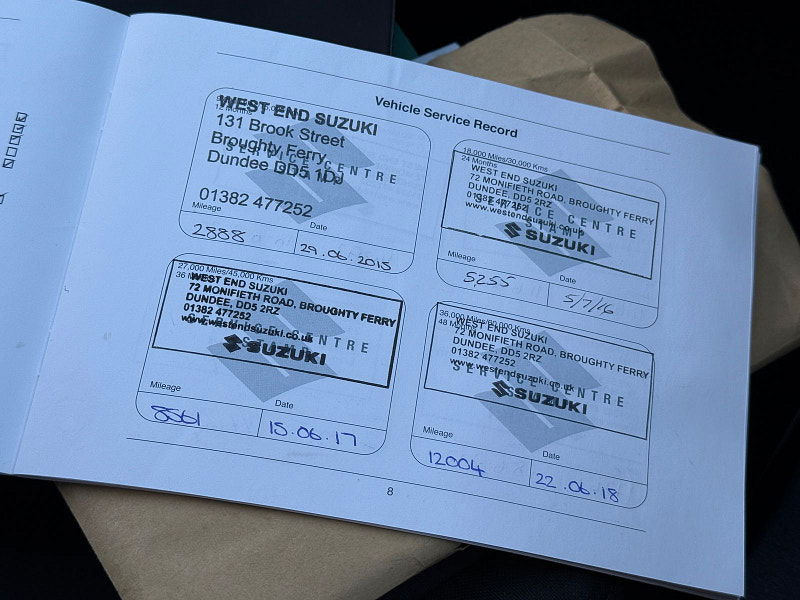 Vehicle Service Record
12 Months
WEST END SUZUKI
131 Brook Street
Broughty Ferry
Dundee DD5 1DJ
SERVICE CENTRE
01382 477252
Mileage
Date
2888
29.06.2015
18,000 Miles/30,000 Kms
24 Months
WEST END SUZUKI
72 MONIFIETH ROAD, BROUGHTY FERRY
DUNDEE, DD5 2RZ
01382 477252
SERVICE CENTRE
www.westendsuzuki.co.uk
STAMP
SUZUKI
Mileage
Date
5255
5/7/16
27,000 Miles/45,000 Kms
36
WEST END SUZUKI
72 MONIFIETH ROAD, BROUGHTY FERRY
DUNDEE, DD5 2RZ
01382 477252
www.westendsuzuki.co.uk
SERVICE CENTRE
STAMP
SUZUKI
Mileage
Date
8561
15.06.17
36,000 Miles/60,000 Kms
48
WEST END SUZUKI
72 MONIFIETH ROAD, BROUGHTY FERRY
DUNDEE, DD5 2RZ
01382 477252
www.westendsuzuki.co.uk
SERVICE CENTRE
SUZUKI
Mileage
Date
12004
22.06.18
8